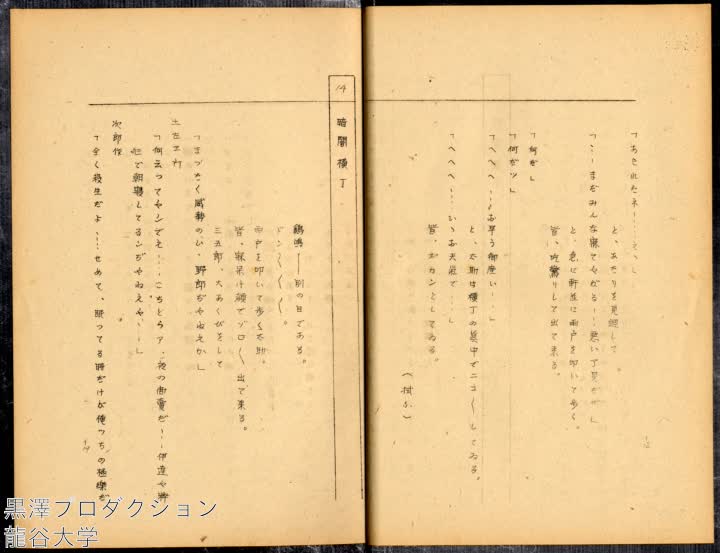 「あきれたネ……え、」
と、あたりを見廻して
「……まだみんな寐てやがる……悪い了見だぜ」
と、急に軒並に雨戸を叩いて歩く。
皆、吃驚りして出て来る。
「何だ」
「何だッ」
「へへへ……お早う御座い……」
と、太助は横丁の真中でニコ〳〵してゐる。
「へへへ……いゝお天気で……」
皆、ポカンとしてゐる。
14
暗闇横丁
鶏鳴――別の日である。
ドン〳〵〳〵。
雨戸を叩いて歩く太助。
皆、寐呆け顔でゾロ〳〵出て来る。
三五郎、大あくびをして
「まつたく威勢のいゝ野郎ぢやねえか」
土左ヱ門
「何云つてやンでえ……こちとらア、夜の商賣だ……伊達や酔
狂で朝寝してるンぢやねえや……」
次郎作
「全く殺生だよ……せめて、眠つてる時だけが俺つちの極樂だ
黒澤プロダクション
龍谷大学